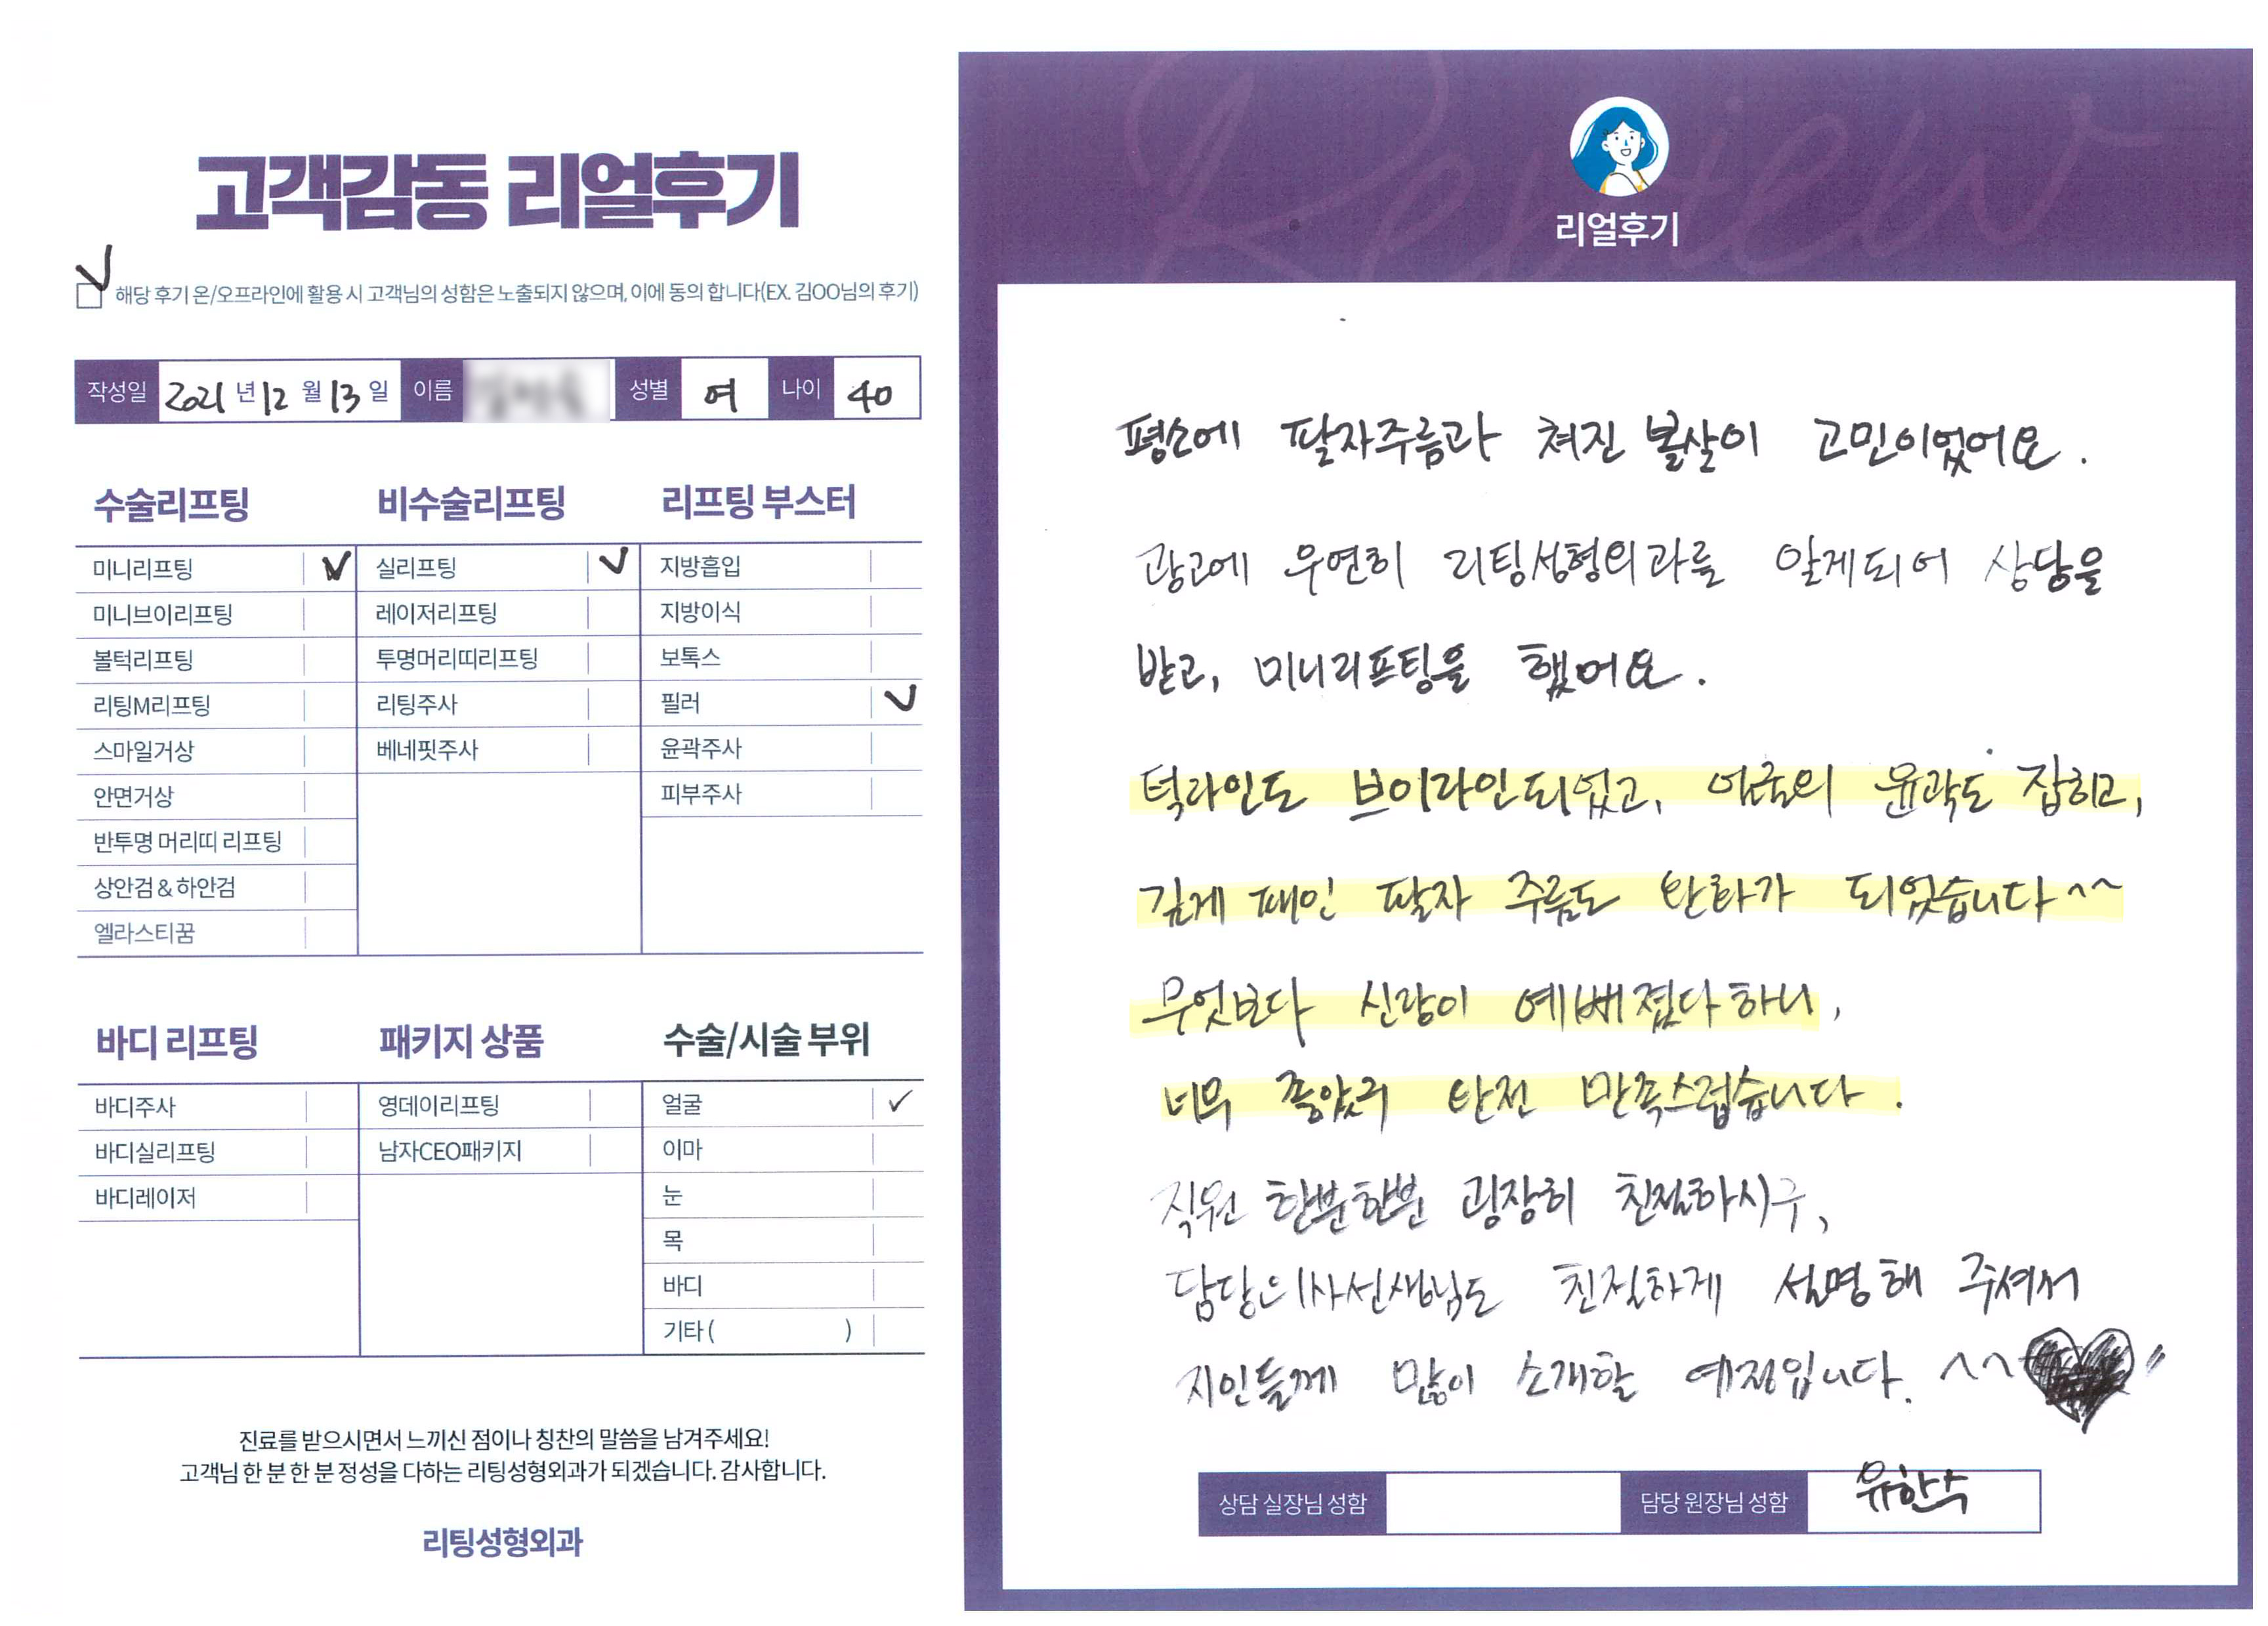 고객감동 리얼후기
해당 후기 온/오프라인에 활용 시 고객님의 성함은 노출되지 않으며, 이에 동의 합니다(EX. 김OO님의 후기)
작성일 2021 년 12 월 13 일 이름 성별 여 나이 40
수술리프팅 비수술리프팅 리프팅 부스터
미니리프팅 실리프팅 지방흡입
미니브이리프팅 레이저리프팅 지방이식
볼턱리프팅 투명머리띠리프팅 보톡스
리팅M리프팅 리팅주사 필러
스마일거상 베네핏주사 윤곽주사
안면거상 피부주사
반투명 머리띠 리프팅
상안검 & 하안검
엘라스티꿈
바디 리프팅 패키지 상품 수술/시술 부위
바디주사 영데이리프팅 얼굴
바디실리프팅 남자CEO패키지 이마
바디레이저 눈
목
바디
기타 ( )
진료를 받으시면서 느끼신 점이나 칭찬의 말씀을 남겨주세요!
고객님 한 분 한 분 정성을 다하는 리팅성형외과가 되겠습니다. 감사합니다.
리팅성형외과
Review
리얼후기
평소에 팔자주름과 쳐진 볼살이 고민이었어요.
광고에 우연히 리팅성형외과를 알게되어 상담을
받고, 미니리프팅을 했어요.
턱라인도 브이라인되었고, 얼굴의 윤곽도 잡히고,
깊게 패인 팔자 주름도 완화가 되었습니다^^
무엇보다 신랑이 예뻐졌다하니,
너무 좋았고 완전 만족스럽습니다.
직원 한분한분 굉장히 친절하시구,
담당의사선생님도 친절하게 설명해 주셔서
지인들께 많이 소개할 예정입니다. ^^
상담 실장님 성함 담당 원장님 성함 유한수